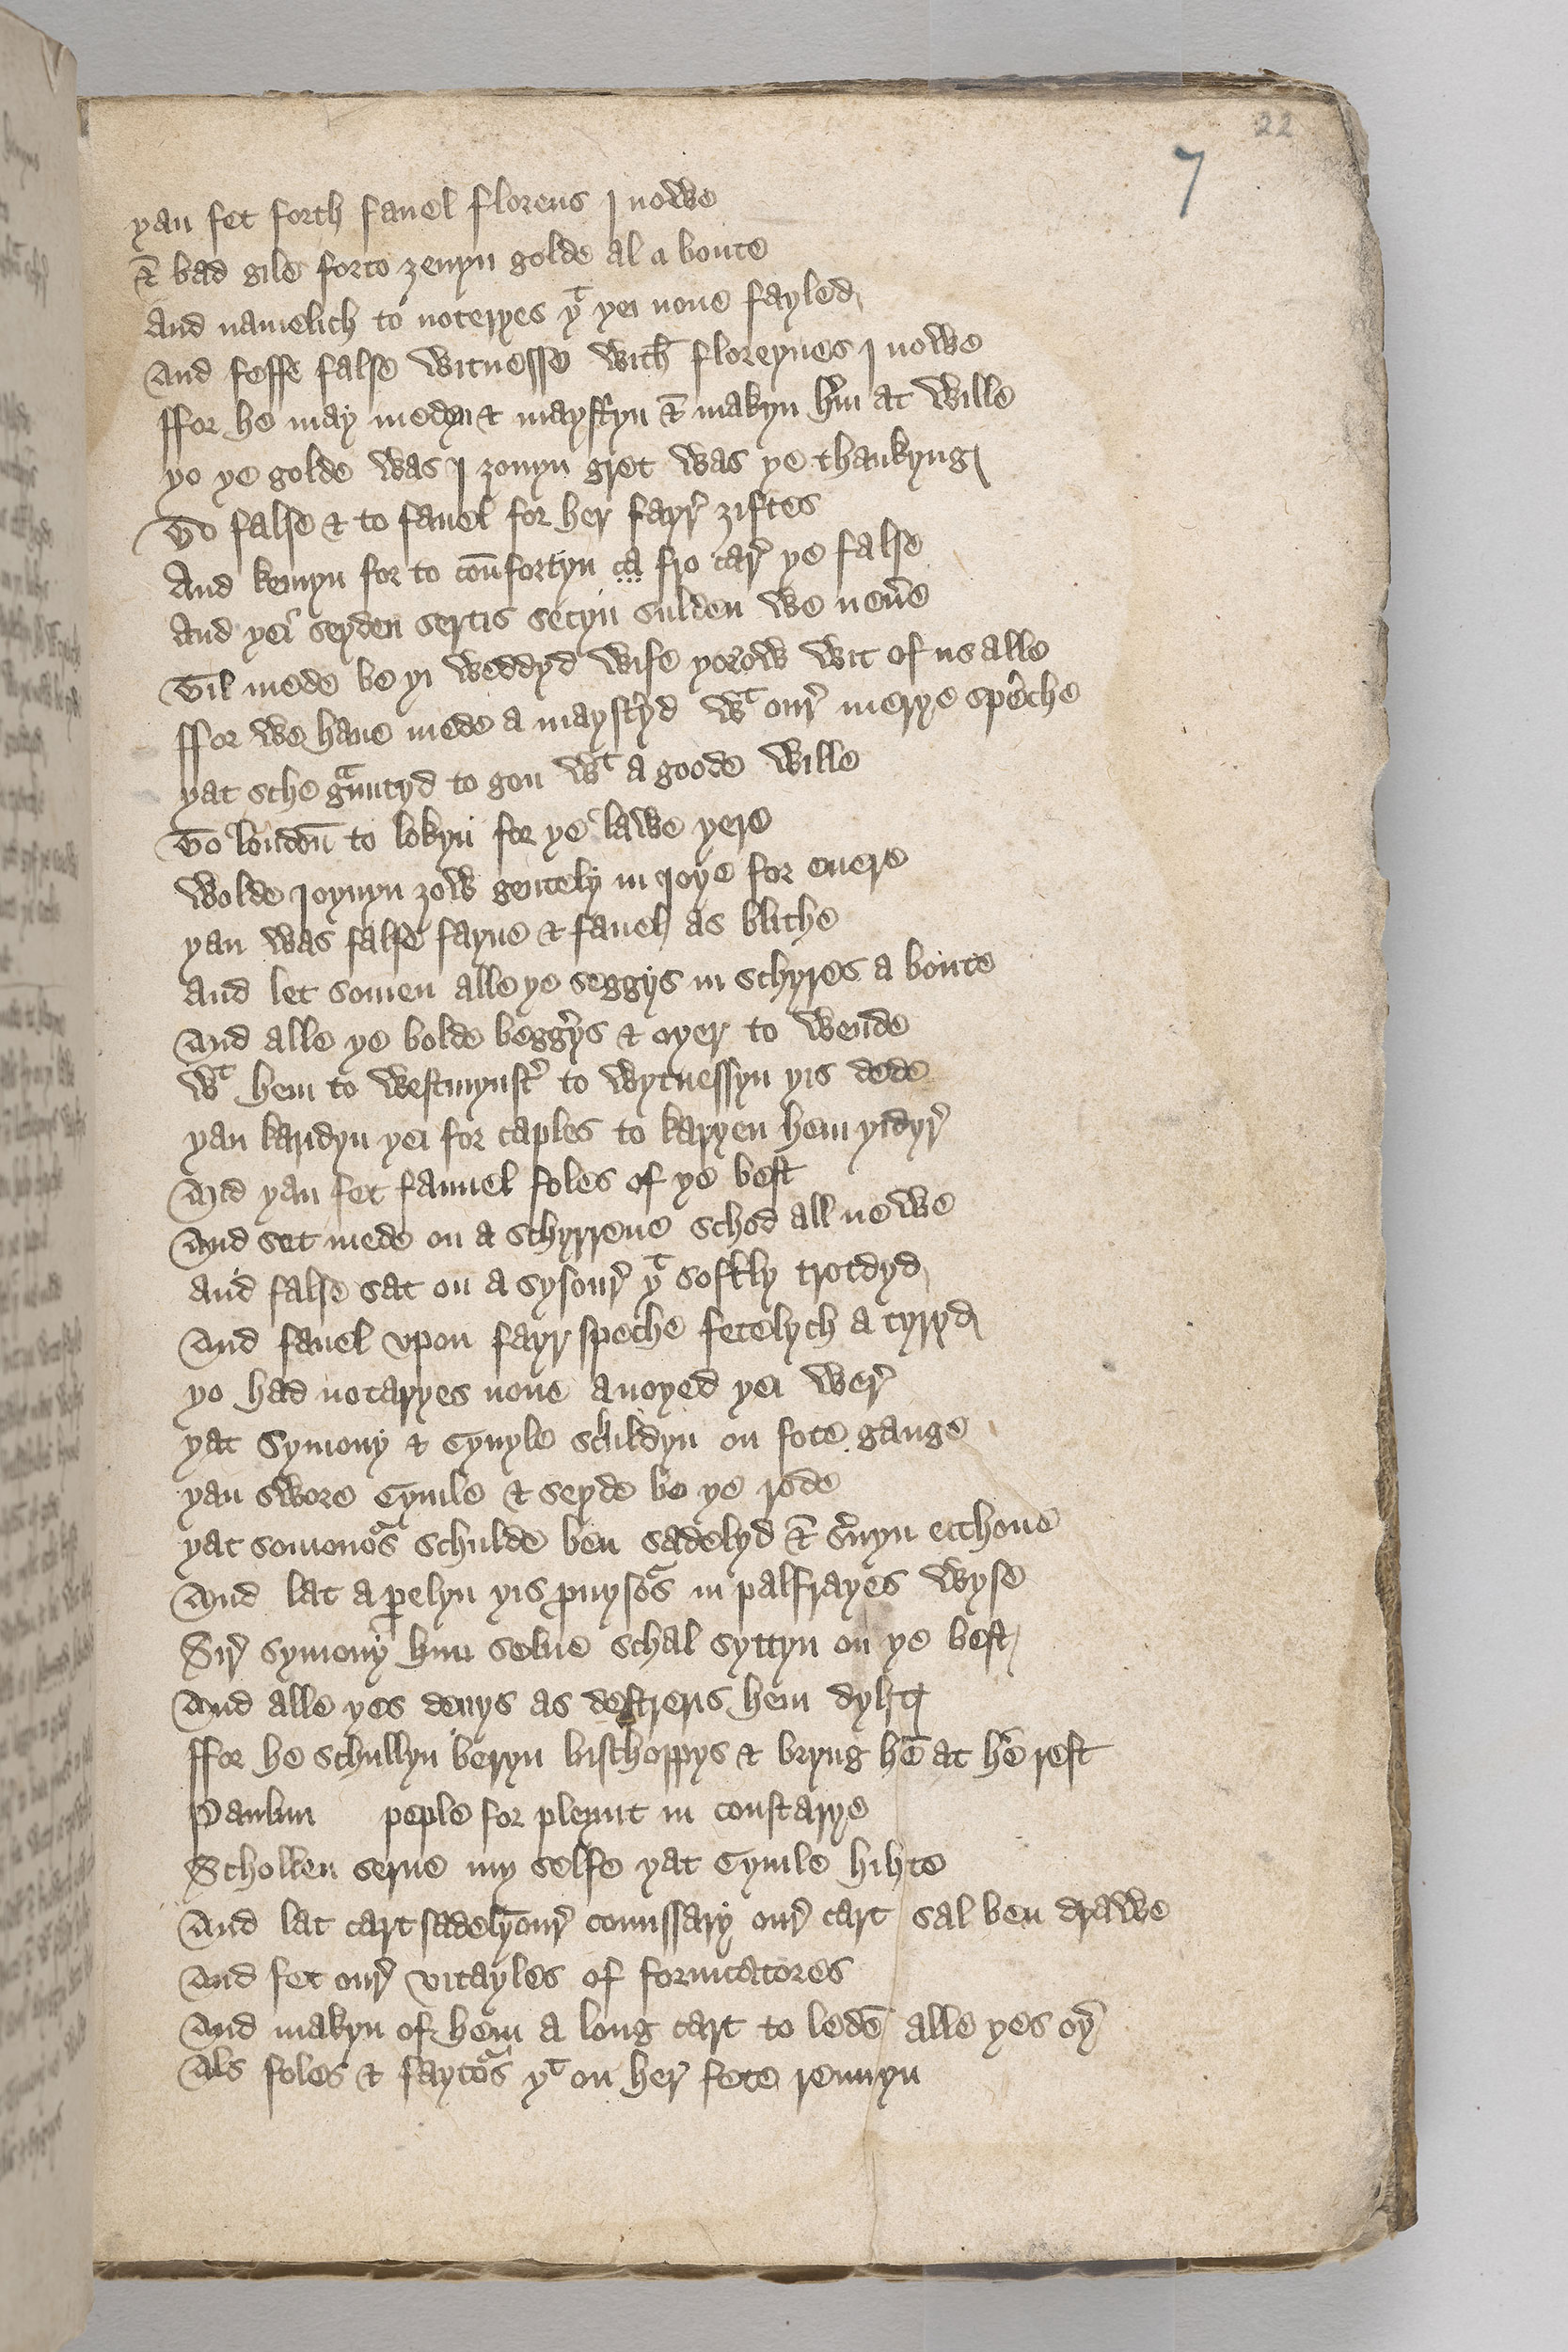 22
7
yan fet forth fauel florens j nowe
& bad gile forto zeuyn golde al a boute
And namelich to noteryes yᵗ yei none fayled
And feffe false witnesse with floreynes j nowe
ffor he may medyn & maystryn & makyn hem at wille
yo ye golde was j zouyn gret was ye thankyng
To false & to fauel for her fayr ziftes
And kemyn for to confortyn ca fro car ye false
And yei seyden sertis secyn sulden we neuere
Til mede be yi weddyd wife yorow wit of us alle
ffor we haue mede a maystryd wᵗ our merye speche
yat sche grauntyd to gon wᵗ a goode wille
To london to lokyn for ye lawe yere
Wolde joynyn zow gentely in joye for euere
yan was false fayne & fauel as blithe
And let somen alle ye seggys in schyres a boute
And alle ye bolde beggers & oyer to wende
wᵗ hem to westmynster to wytnessyn yis dede
yan karidyn yei for caples to karyen hem yidyr
And yan fet fauuel foles of ye best
And set mede on a schyrreue schod all newe
And false sat on a sysour yᵗ softly trotdyd
And fauel vpon fayr speche fetelych a tyryd
yo had notaryes none anoyed yei wer
yat Symony & Cyuyle schuldyn on fote gange
yan swore Cyuile & seyde be ye rode
yat somonoᵃs schulde ben sadelyd & seruyn ecchone
And lat aperelyn yis prouysoᵃs in palfrayes wyse
Sir symony him selue schal syttyn on ye best
And alle yes denys as destreris hem dyht
ffor he schullyn beryn bischoppys & bryng hem at her rest
Paulin peple for pleynt in constarye
Schollen serue my selfe yat Cyuile hihte
And lat cart sadely our comissary our cart sal ben drawe
And fet our vitayles of fornicatores
And makyn of hem a long cart to leden alle yes oyer
Als foles & faytoᵃs yᵗ on her fete rennyn